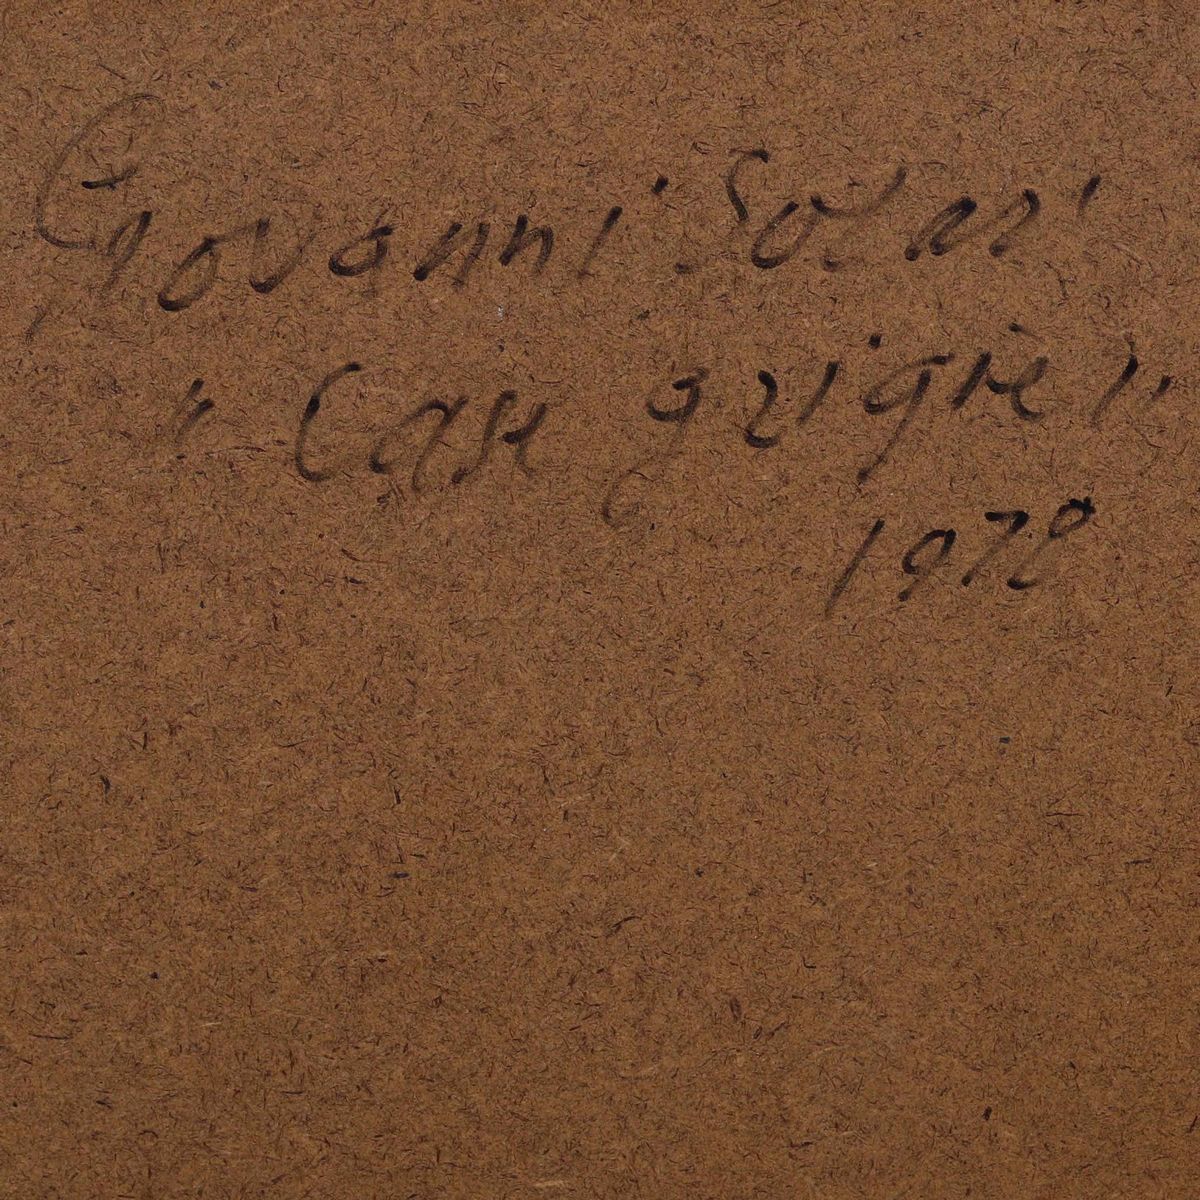 Giovanni Solari
"Case grigie"
1978